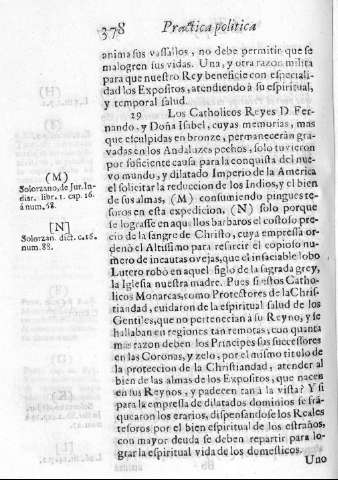 378 Practica politica
anima sus vassallos, no debe permitir que se
malogren sus vidas. Una, y otra razon milita
para que nuestro Rey beneficie con especiali-
dad los Expositos, atendiendo à su espiritual,
y temporal salud.
19 Los Catholicos Reyes D. Fer-
nando, y Doña Isabel, cuyas memorias, mas
que esculpidas en bronze, permanecerán gra-
vadas en los Andaluzes pechos, solo tuvieron
por suficiente causa para la conquista del nue-
vo mundo, y dilatado Imperio de la America
el solicitar la reduccion de los Indios, y el bien
de sus almas, (M) consumiendo pingues te-
soros en esta expedicion, (N) solo porque
se lograsse en aquellos barbaros el costoso pre-
cio de la sangre de Christo, cuya empressa or-
denò el Altissimo para resarcir el copioso nu-
mero de incautas ovejas, que el insaciable lobo
Lutero robò en aquel siglo de la sagrada grey,
la Iglesia nuestra madre. Pues si estos Catho-
licos Monarcas, como Protectores de la Chris-
tiandad, cuidaron de la espiritual salud de los
Gentiles, que no pertenecian à su Reyno, y se
hallaban en regiones tan remotas, con quanta
mas razon deben los Principes sus successores
en las Coronas, y zelo, por el mismo titulo de
la proteccion de la Christiandad, atender al
bien de las almas de los Expositos, que nacen
en sus Reynos, y padecen tan à la vista? Y si
para la empressa de dilatados dominios se frã-
quearon los erarios, dispensandose los Reales
tesoros por el bien espiritual de los estraños,
con mayor deuda se deben repartir para lo-
grar la espiritual vida de los domesticos.
Uno
(M)
Solorzano, de Jur. In-
diar. libr. 1. cap. 16.
à num. 58.
[N]
Solorzan. dict. c. 16.
num. 88.